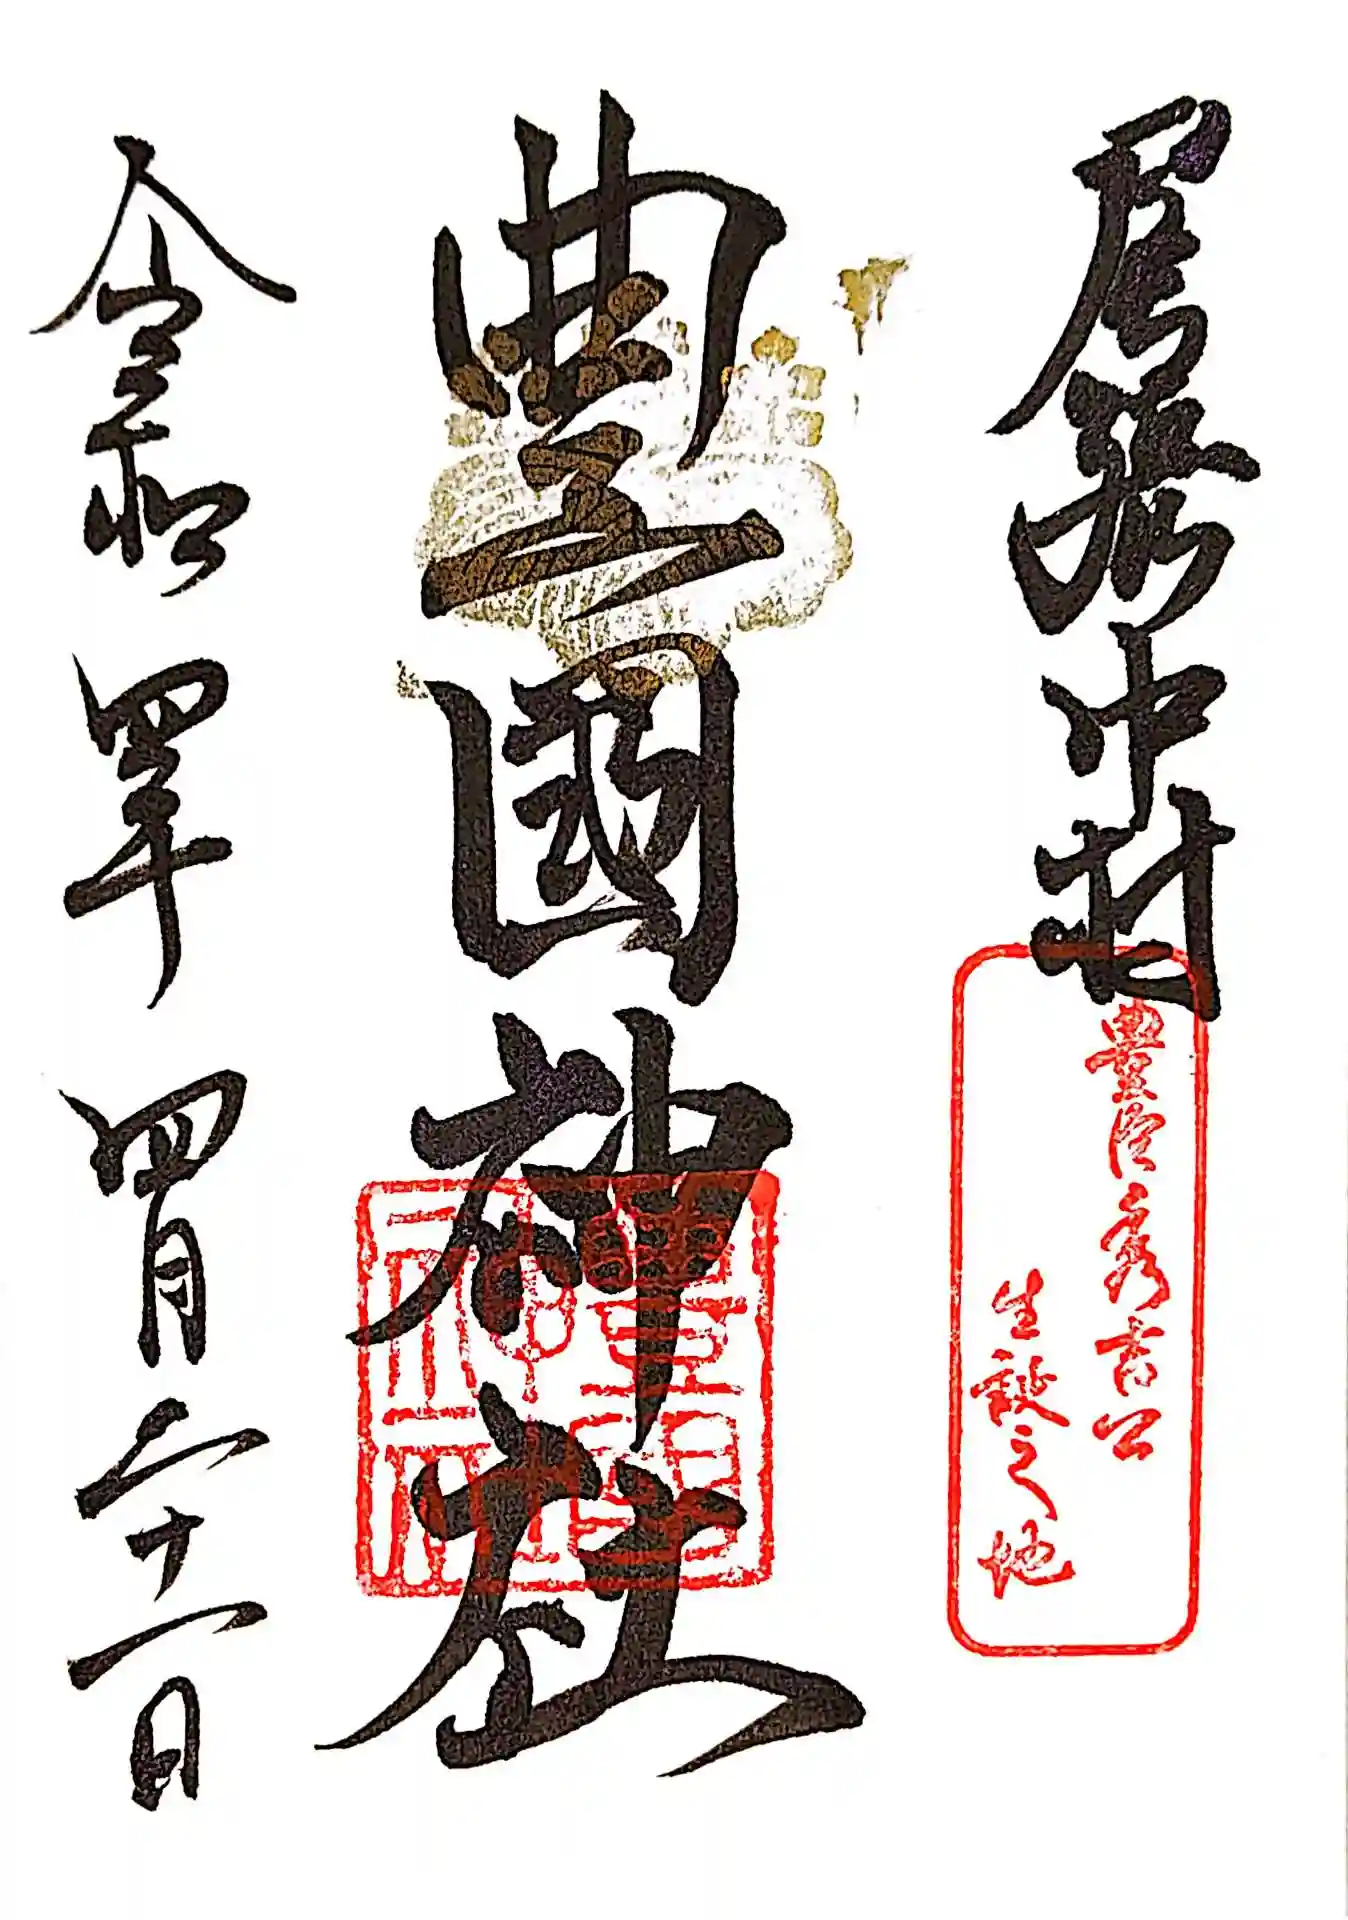 尾張中村
豊臣秀吉公
生誕之地
豊國神社
豊國
神社
令和四年四月二十一日